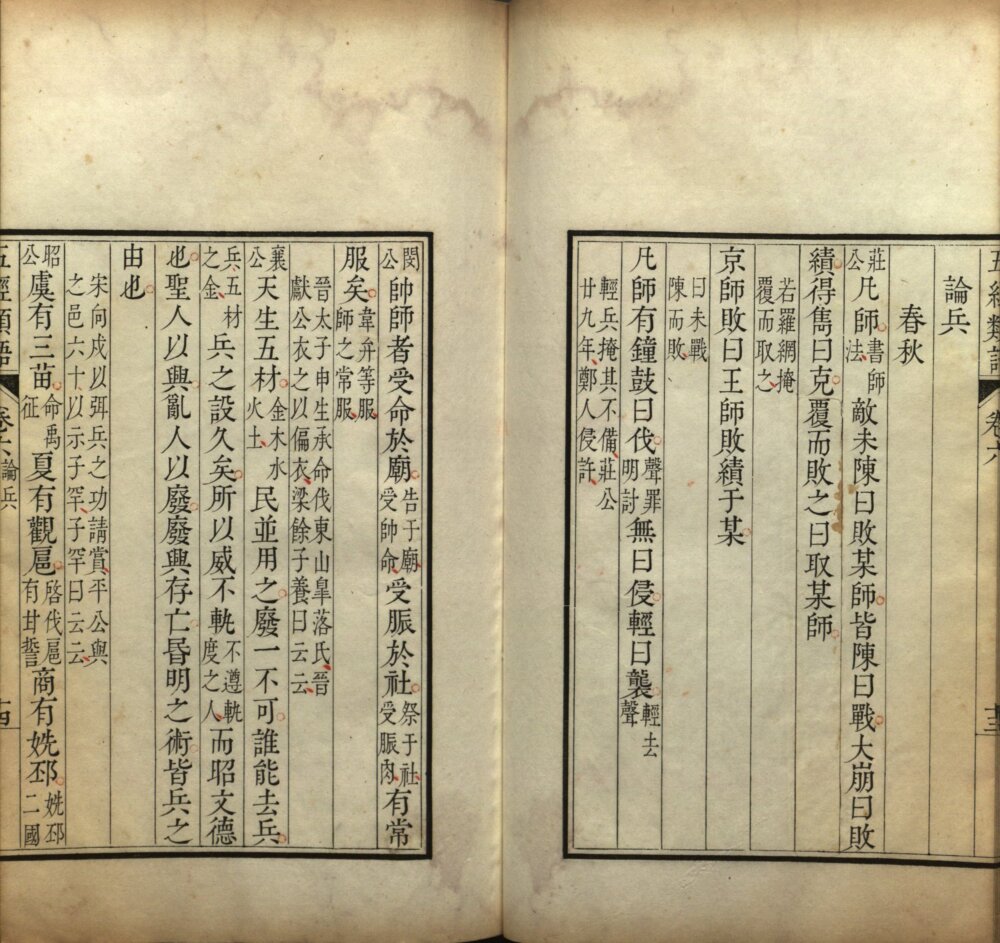 五經類語 卷六 十三
論兵
春秋
莊公凡師書師法敵未陳曰敗某師皆陳曰戰大崩曰敗
績得雋曰克覆而敗之曰取某師
若羅網掩覆而取之
京師敗曰王師敗績于某
曰未戰陳而敗
凡師有鐘鼓曰伐聲罪明討無曰侵輕曰襲輕去聲
輕兵掩其不備莊公廿九年鄭人侵許
閔公帥師者受命於廟告于廟受帥命受脤於社祭于社受脤肉有常
服矣韋弁等服師之常服
晉太子申生承命伐東山臯落氏晉獻公衣之以偏衣梁餘子養曰云云
襄公天生五材金木水火土民並用之廢一不可誰能去兵
兵五材之金兵之設久矣所以威不軌不遵軌度之人而昭文德
也聖人以興亂人以廢廢興存亡昏明之術皆兵之
由也
宋向戌以弭兵之功請賞平公與之邑六十以示子罕子罕曰云云
昭公虞有三苗命禹征夏有觀扈啓伐扈有甘誓商有姺邳姺邳二國
五經類語 卷六 論兵 十四